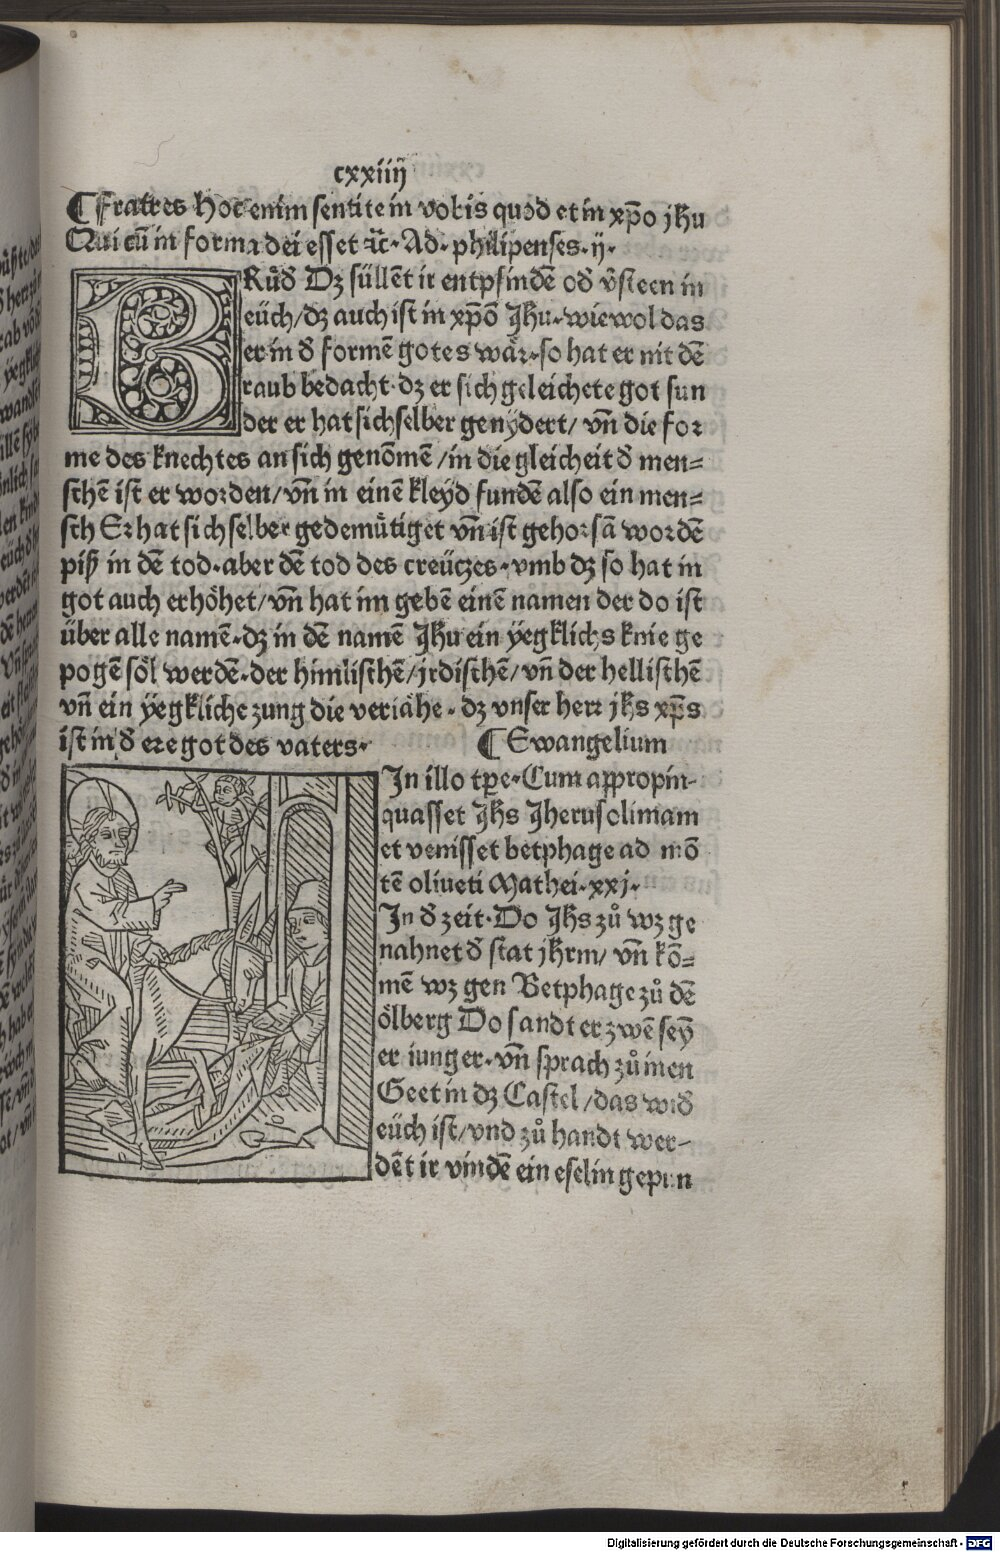 cxxiiij
¶ Fratres Hoc enim sentite in vobis quod et in xp̄o jhu
Qui cū in forma dei esset ꝛc̄. Ad. philipenses. ij.
BRůd̄ Dz süllēt ir entpfindē od̄ v̄steen in
eüch/dz auch ist in xp̄o Jhu. wiewol das
er in d̄ formē gotes wär. so hat er nit dē
raub bedacht. dz er sich geleichete got sun
der er hat sich selber genydert/ vn̄ die for
me des knechtes an sich genōmē/in die gleicheit d̄ men⸗
schē ist er worden/vn̄ in einē kleyd fundē also ein men⸗
sch Er hat sich selber gedemütiget vn̄ ist gehorsā wordē
piß in dē tod. aber dē tod des creützes. vmb dz so hat in
got auch erhöhet/vn̄ hat im gebē einē namen der do ist
über alle namē. dz in dē namē Jhu ein yegklichs knie ge
pogē söl werdē. der himlischē/jrdischē/vn̄ der hellischē
vn̄ ein yegkliche zung die veriähe. dz vnser herr jhs xp̄s
ist in d̄ ere got des vaters. ¶ Ewangelium
Jn illo tp̄e. Cum appropin-
quasset Jhs Jherusolimam
et venisset betphage ad mō
tē oliveti Mathei. xxj.
Jn d̄ zeit. Do Jhs zů wz ge
nahnet d̄ stat jhrm/ vn̄ kō⸗
mē wz gen Betphage zů dē
ölberg Do sandt er zwē sey
er iunger. vn̄ sprach zů inen
Geet in dz Castel/das wid̄
eüch ist/vnd zů handt wer-
dēt ir vindē ein eselin gepun